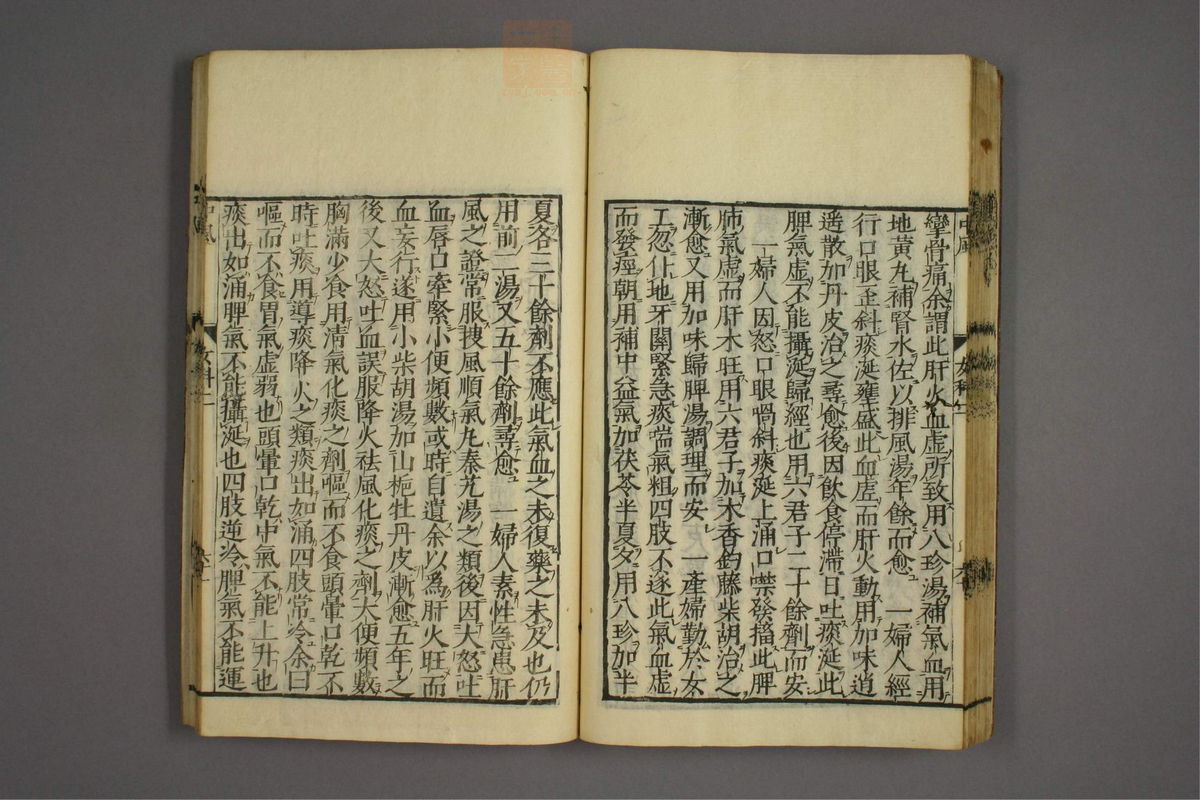 攣骨痛余謂此肝火血虛所致用八珍湯補氣血用
地黃丸補腎水佐以排風湯年餘而愈 一婦人經
行口眼歪斜痰涎壅盛此血虛而肝火動用加味逍
遥散加丹皮治之尋愈後因飲食停滯日吐痰涎此
脾氣虛不能攝涎歸經也用六君子二十餘劑而安
一婦人因怒口眼喎斜痰涎上涌口噤發搐此脾
肺氣虛而肝木旺用六君子加木香鈎藤柴胡治之
漸愈又用加味歸脾湯調理而安 一產婦勤於女
工忽仆地牙關緊急痰喘氣粗四肢不遂此氣血虛
而發痙朝用補中益氣加茯苓半夏夕用八珍加半
夏各三十餘劑不應此氣血之未復藥之未及也仍
用前二湯又五十餘劑尋愈 一婦人素性急患肝
風之證常服搜風順氣丸秦艽湯之類後因大怒吐
血唇口牽緊小便頻數或時自遺余以為肝火旺而
血妄行遂用小柴胡湯加山梔牡丹皮漸愈五年之
後又大怒吐血誤服降火祛風化痰之劑大便頻數
胸滿少食用清氣化痰之劑嘔而不食頭暈口乾不
時吐痰用導痰降火之類痰出如涌四肢常冷余曰
嘔而不食胃氣虛弱也頭暈口乾中氣不能上升也
痰出如涌脾氣不能攝涎也四肢逆冷脾氣不能運
中風
女科二